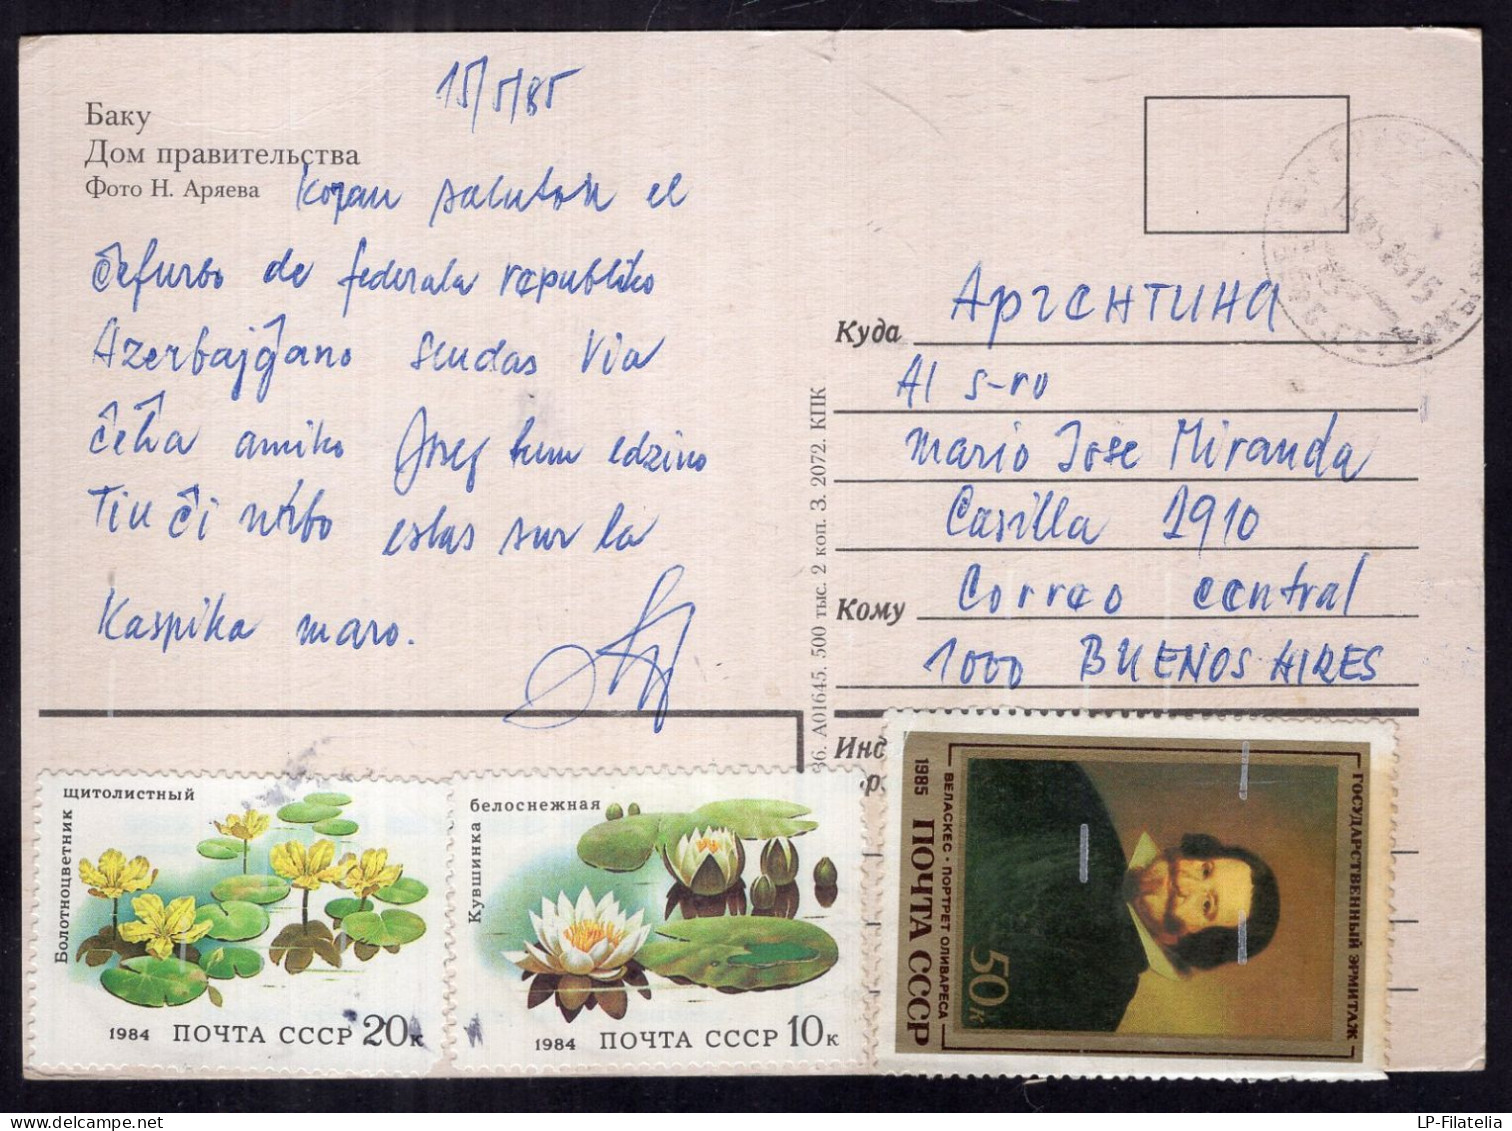 15/5/85
Баку
Дом правительства
Фото Н. Аряева
Koran saluton el
ĉefurbo de federala republiko
Azerbajĝano sendas Via
ĉeĥa amiko Josef kun edzino
Tiu ĉi urbo estas sur la
Kaspika maro.
36. А01645. 500 тыс. 2 коп. З. 2072. КПК
Куда Аргентина
Al s-ro
Mario Jose Miranda
Casilla 1910
Кому Correo central
1000 BUENOS AIRES
Инд
Болотноцветник
щитолистный
1984 ПОЧТА СССР 20к
Кувшинка
белоснежная
1984 ПОЧТА СССР 10к
1985 ПОЧТА СССР 50к
ВЕЛАСКЕС · ПОРТРЕТ ОЛИВАРЕСА
ГОСУДАРСТВЕННЫЙ ЭРМИТАЖ
LP-Filatelia